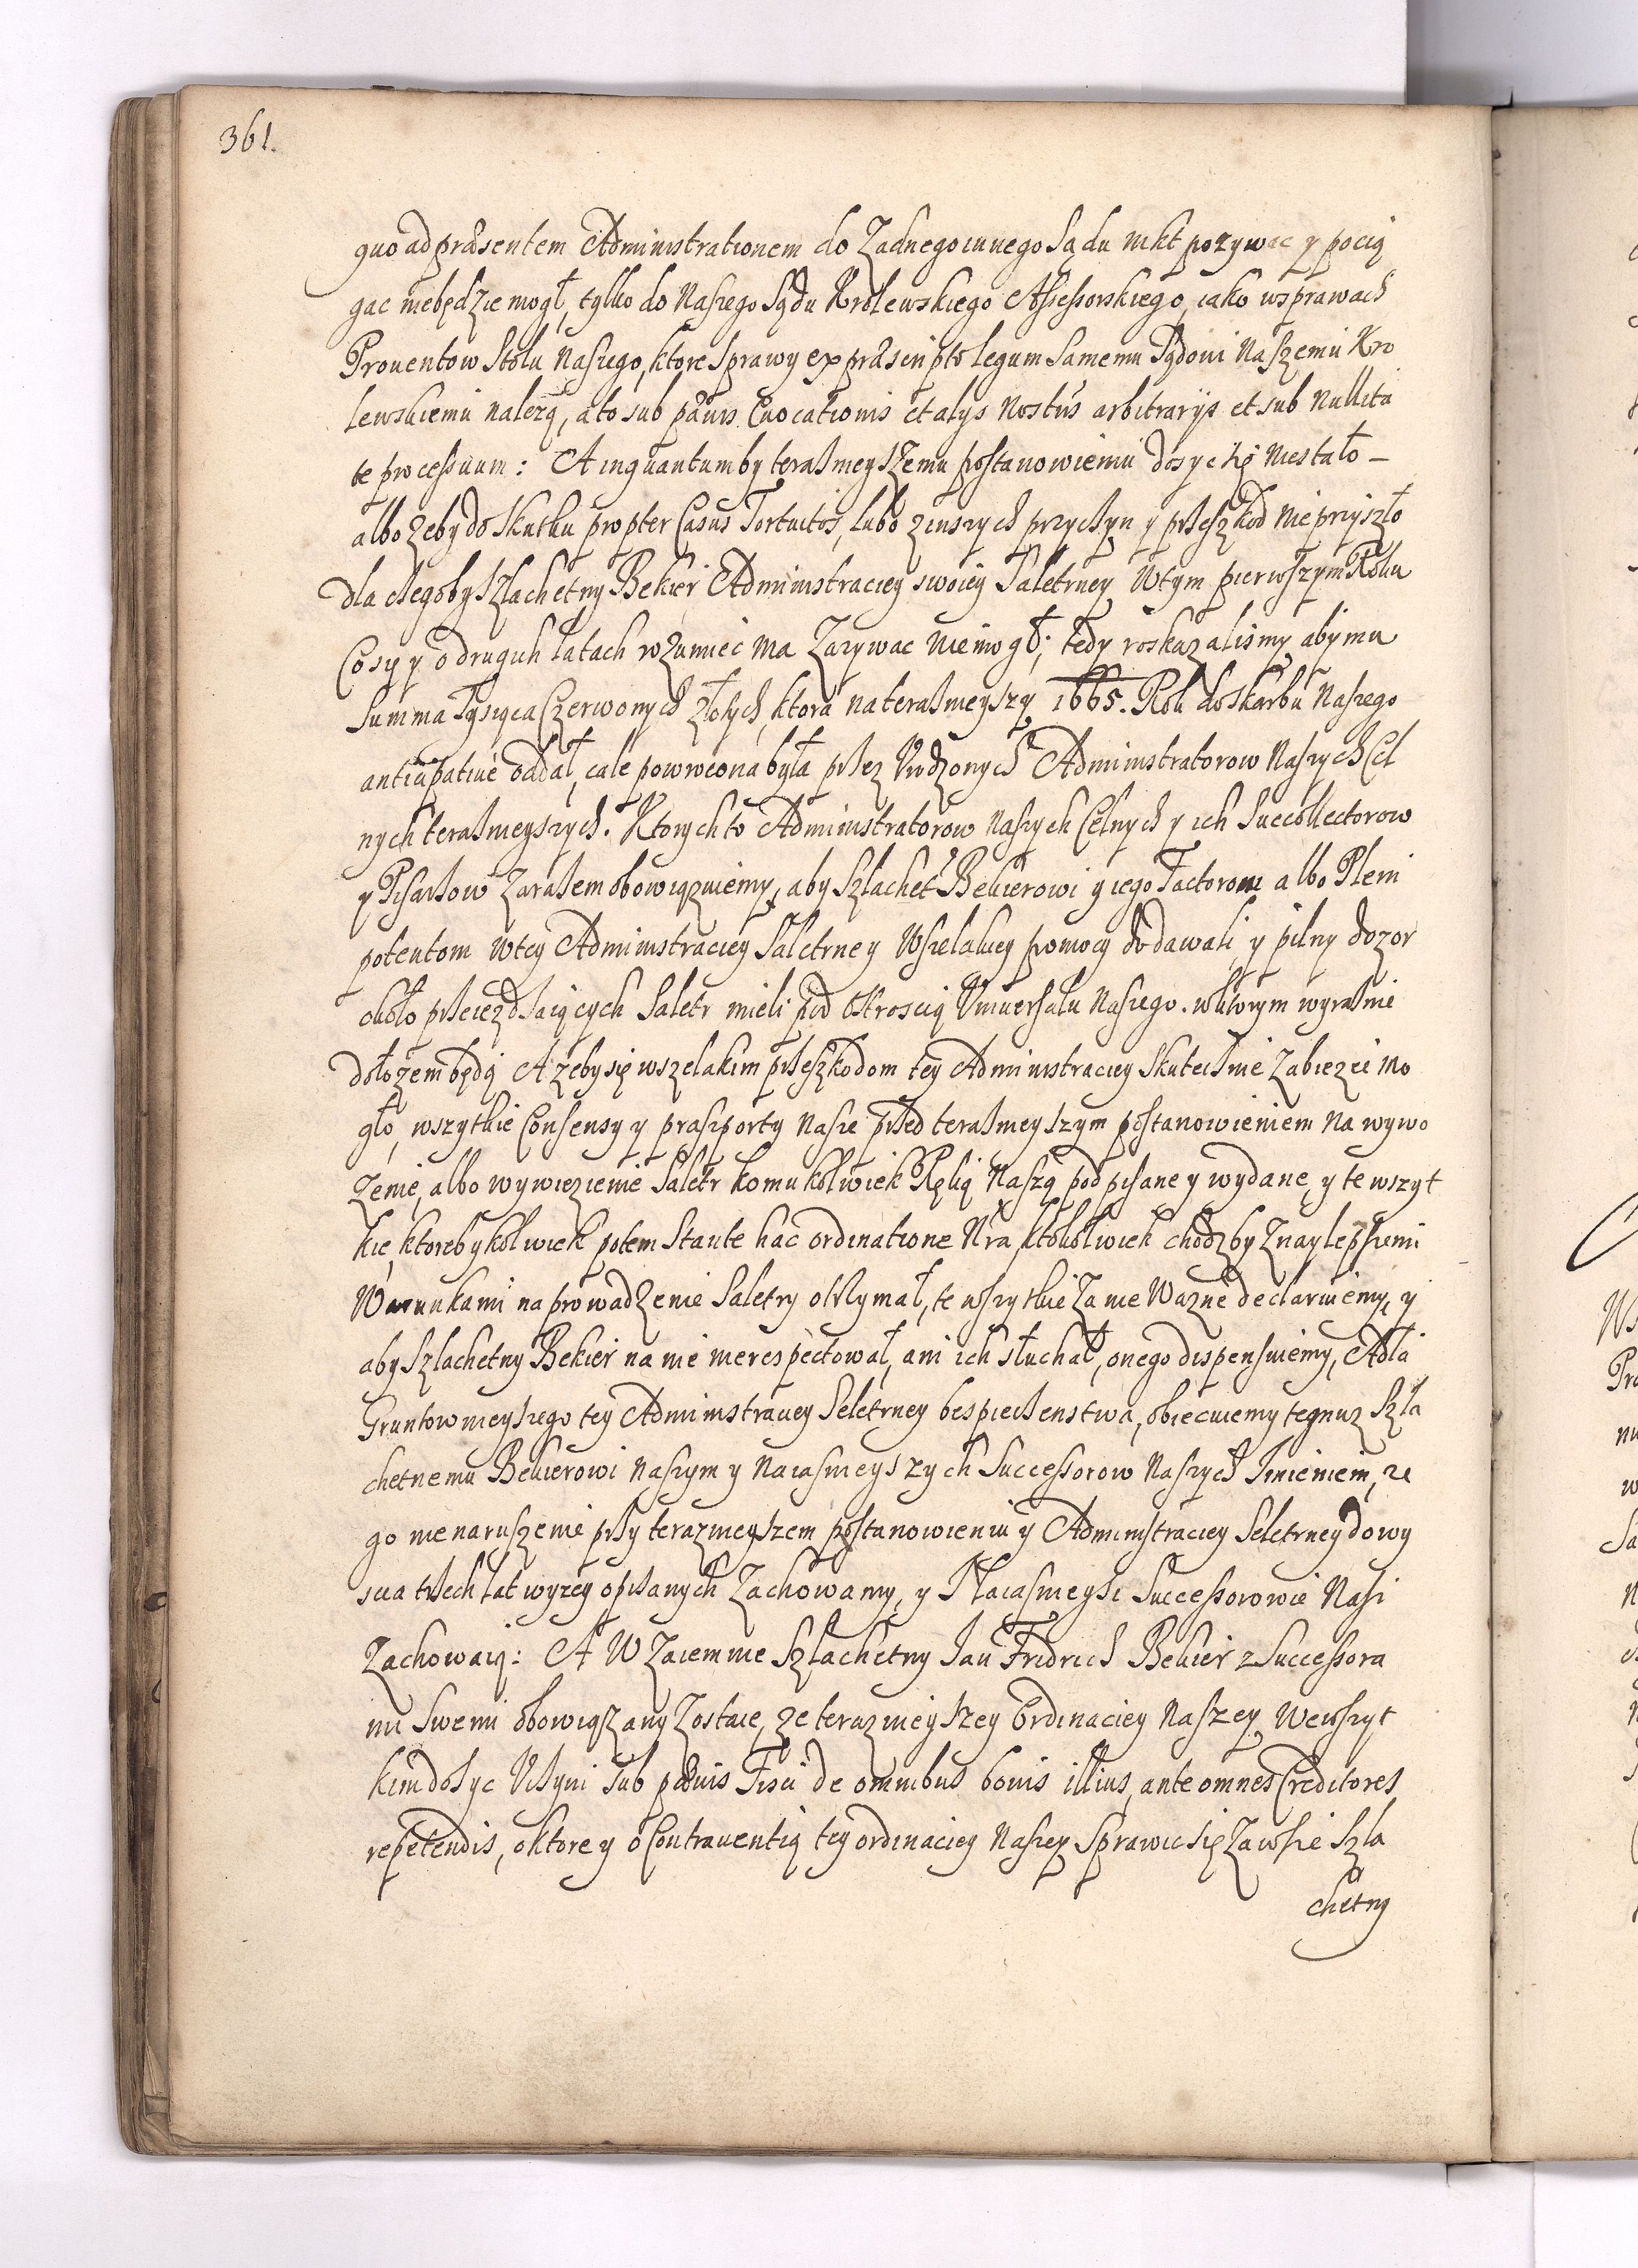 361.
quo ad præsentem Administrationem do Zadnego innego Sądu nikt pozywac y pocią
gac niebędzie mogł, tylko do Naszego Sądu Krolewskiego Assessorskiego, iako wsprawach
Prouentow Stołu Naszego, ktore Sprawy ex præscripto Legum Samemu Sądowi Naszemu Kro
lewskiemu należą, a to sub pænis Euocationis et alys Nostris arbitrarijs et sub Nullita
te processuum: A inquantumby terasnieyszemu postanowieniu dosyc się niestało –
albo zeby do Skutku propter Casus Fortuitos, lubo z inszych przyczyn y przeszkod nie przyszło
dla czegoby Szlachetny Bekier Administraciey swoiey Saletrney Wtym pierwszym Roku
Co sy y o drugich latach rozumiec ma Zazywac niemogł; tedy roskazalismy, aby mu
Summa Tysiąca Czerwonych złotych, ktora na terasnieyszy 1665. Rok do Skarbu Naszego
anticipatiue oddał, cale powrocona była przez Urodzonych Administratorow Naszych Cel
nych terasnieyszych. Ktorych to Administratorow Naszych Celnych y ich Succollectorow
y Pisarzow Zarazem obowiązuiemy, aby Szlachet Bekierowi y iego Factorom albo Pleni
potentom wtey Administraciey Saletrney Wszelakiey pomocy dodawali, y pilny dozor
około przeiezdzaiących Saletr mieli pod ostroscią Uniuersału Naszego. wktorym wyraznie
dołozem będą A zeby się wszelakim przeszkodom tey Administraciey Skutecznie Zabiezec mo
gło, wszytkie Consensy y praszporty Nasze przed terasnieyszym postanowieniem na wywo
zenie, albo wywiezienie Saletr komukolwiek Ręką Naszą podpisane y wydane, y te wszyt
kie, ktoreby kolwiek potem Stante hac ordinatione Nra ktokolwiek chodzby Znaylepszemi
Warunkami na prowadzenie Saletry otrzymał, te wszytkie Za nie Wazne declaruiemy, y
aby Szlachetny Bekier na nie nierespectował, ani ich słuchał, onego dispensuiemy, A dla
Gruntownieyszego tey Administraciey Seletrney bespieczenstwa, obiecuiemy tegnuz Szla
chetnemu Bekierowi Naszym y Naiasnieyszych Successorow Naszych Imieniem, ze
go nienaruszenie przy teraznieyszem postanowieniu y Administraciey Seletrney do wy
scia trzech lat wyzey opisanych Zachowamy, y Naiasnieysi Successorowie Nasi
Zachowaią: A Wzaiemnie Szlachetny Jan Fridrich Bekier z Successora
mi Swemi obowiązany Zostaie, ze teraznieyszey Ordinaciey Naszey Wewszyt
kim dosyc Uczyni sub pænis Fisci de omnibus bonis illius, ante omnes Creditores
repetendis, o ktore y o Contrauentią tey ordinaciey Naszey Sprawic się Zawsze Szla
chetny